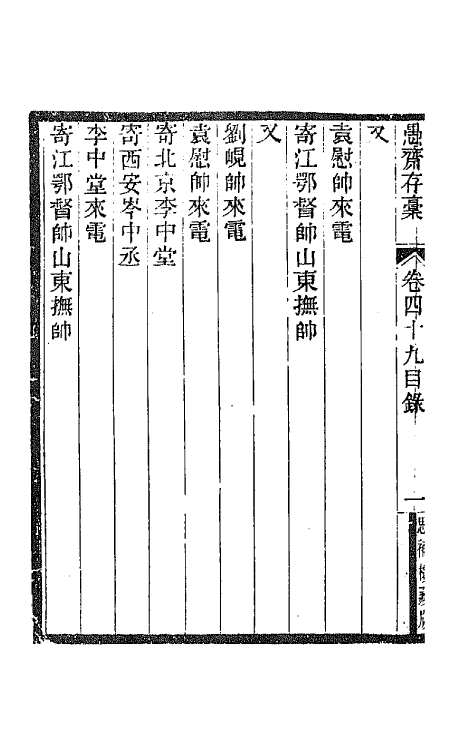 愚齋存稾
卷四十九目錄
一
思補樓藏版
又
袁慰帥來電
寄江鄂督帥山東撫帥
又
劉峴帥來電
袁慰帥來電
寄北京李中堂
寄西安岑中丞
李中堂來電
寄江鄂督帥山東撫帥